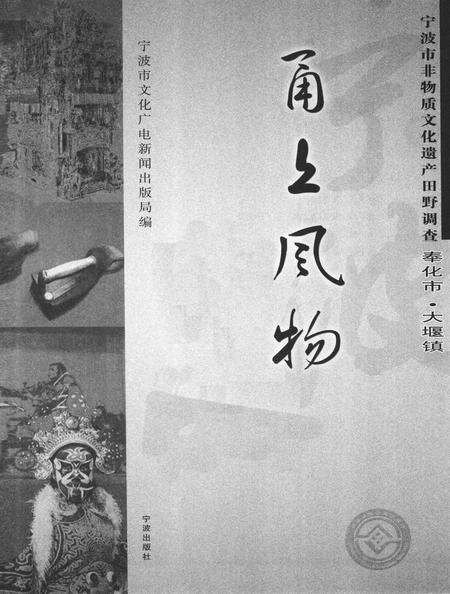 宁波市非物质文化遗产田野调查 奉化市·大堰镇
甬上风物
宁波市文化广电新闻出版局编
宁波出版社